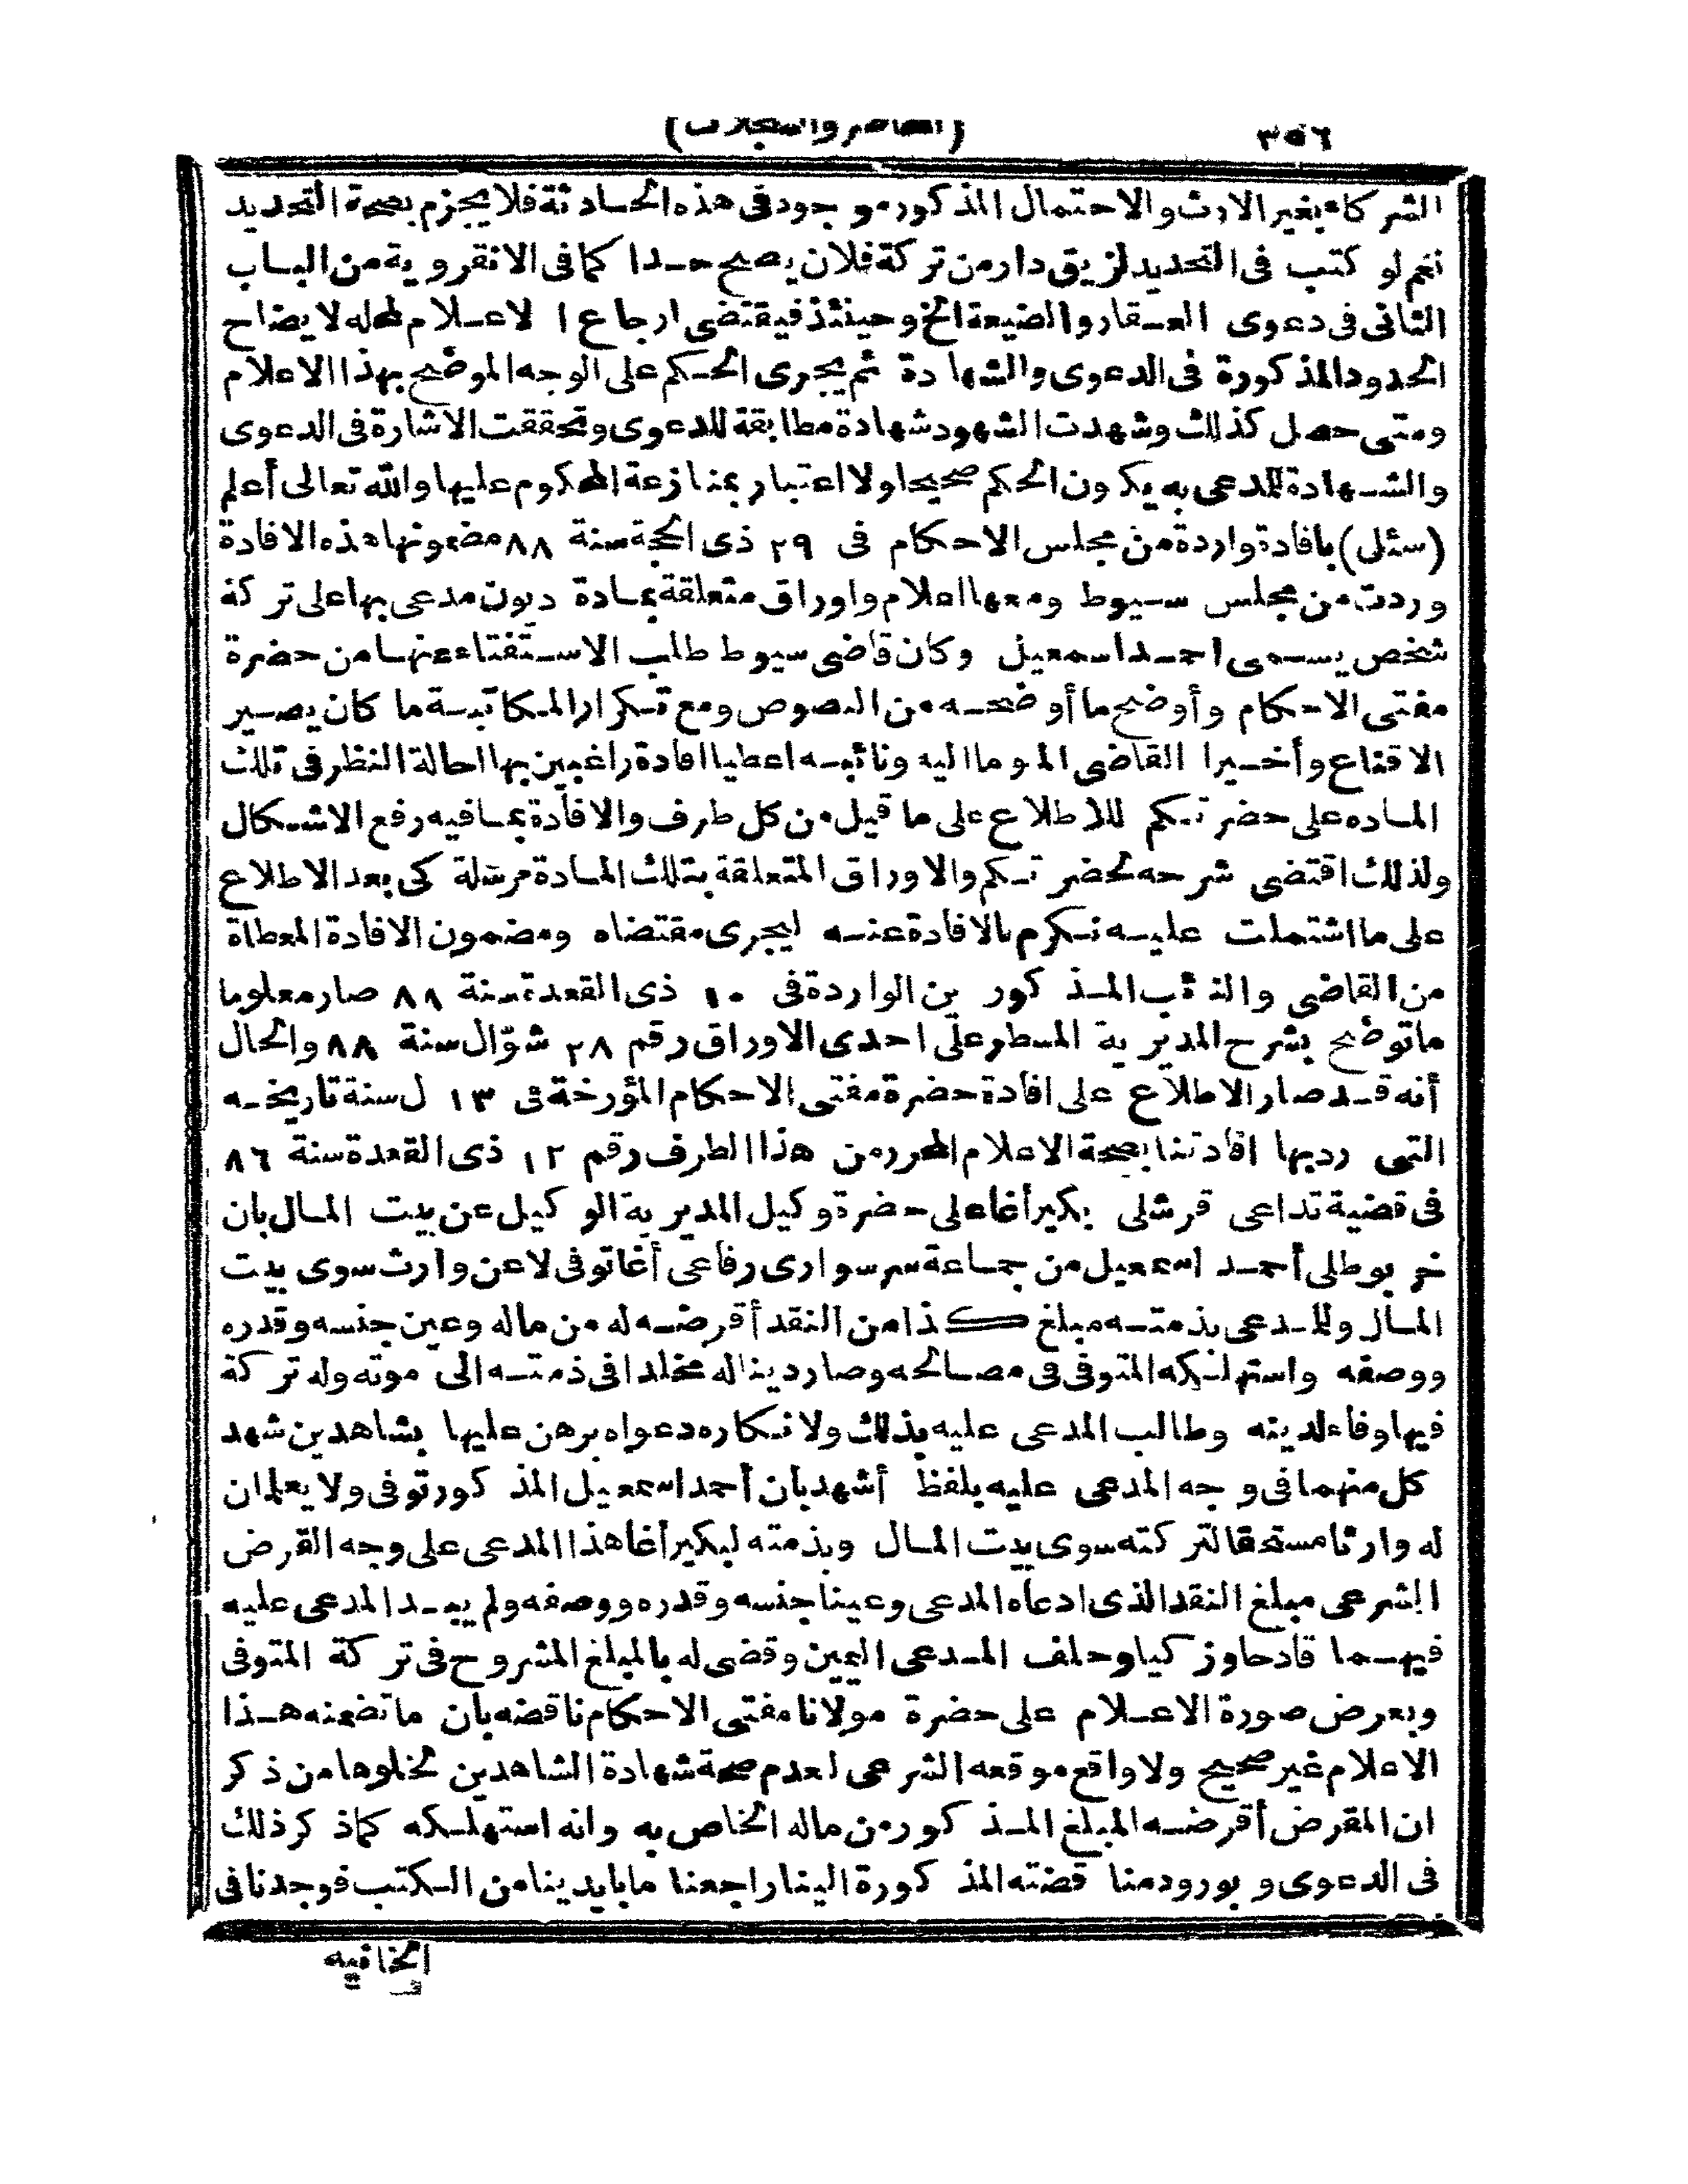 ٣٥٦
(المحاضر والسجلات)
الشركاء بغير الارث والاحتمال المذكور موجود فى هذه الحادثة فلا يجزم بصحة التحديد
نعم لو كتب فى التحديد لزيق دار من تركة فلان يصح حدا كما فى الانقروية من الباب
الثانى فى دعوى العقار والضيعة الخ وحينئذ فيقتضى ارجاع الاعلام لمحله لايضاح
الحدود المذكورة فى الدعوى والشهادة ثم يجرى الحكم على الوجه الموضح بهذا الاعلام
ومتى حصل كذلك وشهدت الشهود شهادة مطابقة للدعوى وتحققت الاشارة فى الدعوى
والشهادة للمدعى به يكون الحكم صحيحا ولا اعتبار بمنازعة المحكوم عليها والله تعالى أعلم
(سئل) بافادة واردة من مجلس الاحكام فى ٢٩ ذى الحجة سنة ٨٨ مضمونها هذه الافادة
وردت من مجلس سيوط ومعها اعلام واوراق متعلقة بمادة ديون مدعى بها على تركة
شخص يسمى احمد اسمعيل وكان قاضى سيوط طلب الاستفتاء عنها من حضرة
مفتى الاحكام وأوضح ما أوضحه من النصوص ومع تكرار المكاتبة ما كان يصير
الاقناع وأخيرا القاضى الموما اليه ونائبه اعطيا افادة راغبين بها احالة النظر فى تلك
الماده على حضرتكم للاطلاع على ما قيل من كل طرف والافادة بما فيه رفع الاشكال
ولذلك اقتضى شرحه لحضرتكم والاوراق المتعلقة بتلك المادة مرسلة كى بعد الاطلاع
على ما اشتملت عليه نكرم بالافادة عنه ليجرى مقتضاه ومضمون الافادة المعطاة
من القاضى والنائب المذكورين الواردة فى ١٠ ذى القعدة سنة ٨٨ صار معلوما
ما توضح بشرح المديرية المسطر على احدى الاوراق رقم ٢٨ شوّال سنة ٨٨ والحال
أنه قد صار الاطلاع على افادة حضرة مفتى الاحكام المؤرخة فى ١٣ ل سنة تاريخه
التى رد بها افادتنا بصحة الاعلام المحرر من هذا الطرف رقم ١٢ ذى القعدة سنة ٨٦
فى قضية تداعى قرشلى بكير أغا على حضرة وكيل المديرية الوكيل عن بيت المال بان
خربوطلى أحمد اسمعيل من جماعة سرسوارى رفاعى أغا توفى لا عن وارث سوى بيت
المال وللمدعى بذمته مبلغ كذا من النقد أقرضه له من ماله وعين جنسه وقدره
ووصفه واستهلكه المتوفى فى مصالحه وصار دينا له مخلدا فى ذمته الى موته وله تركة
فيها وفاء لدينه وطالب المدعى عليه بذلك ولانكاره دعواه برهن عليها بشاهدين شهد
كل منهما فى وجه المدعى عليه بلفظ أشهد بأن أحمد اسمعيل المذكور توفى ولا يعلمان
له وارثا مستحقا لتركته سوى بيت المال وبذمته لبكير أغا هذا المدعى على وجه القرض
الشرعى مبلغ النقد الذى ادعاه المدعى وعينا جنسه وقدره ووصفه ولم يبد المدعى عليه
فيهما قادحا وزكيا وحلف المدعى اليمين وقضى له بالمبلغ المشروح فى تركة المتوفى
وبعرض صورة الاعلام على حضرة مولانا مفتى الاحكام ناقضه بان ما تضمنه هذا
الاعلام غير صحيح ولا واقع موقعه الشرعى لعدم صحة شهادة الشاهدين لخلوها من ذكر
ان المقرض أقرضه المبلغ المذكور من ماله الخاص به وانه استهلكه كما ذكر ذلك
فى الدعوى وبورود مناقضته المذكورة الينا راجعنا ما بايدينا من الكتب فوجدنا فى
الخانيه